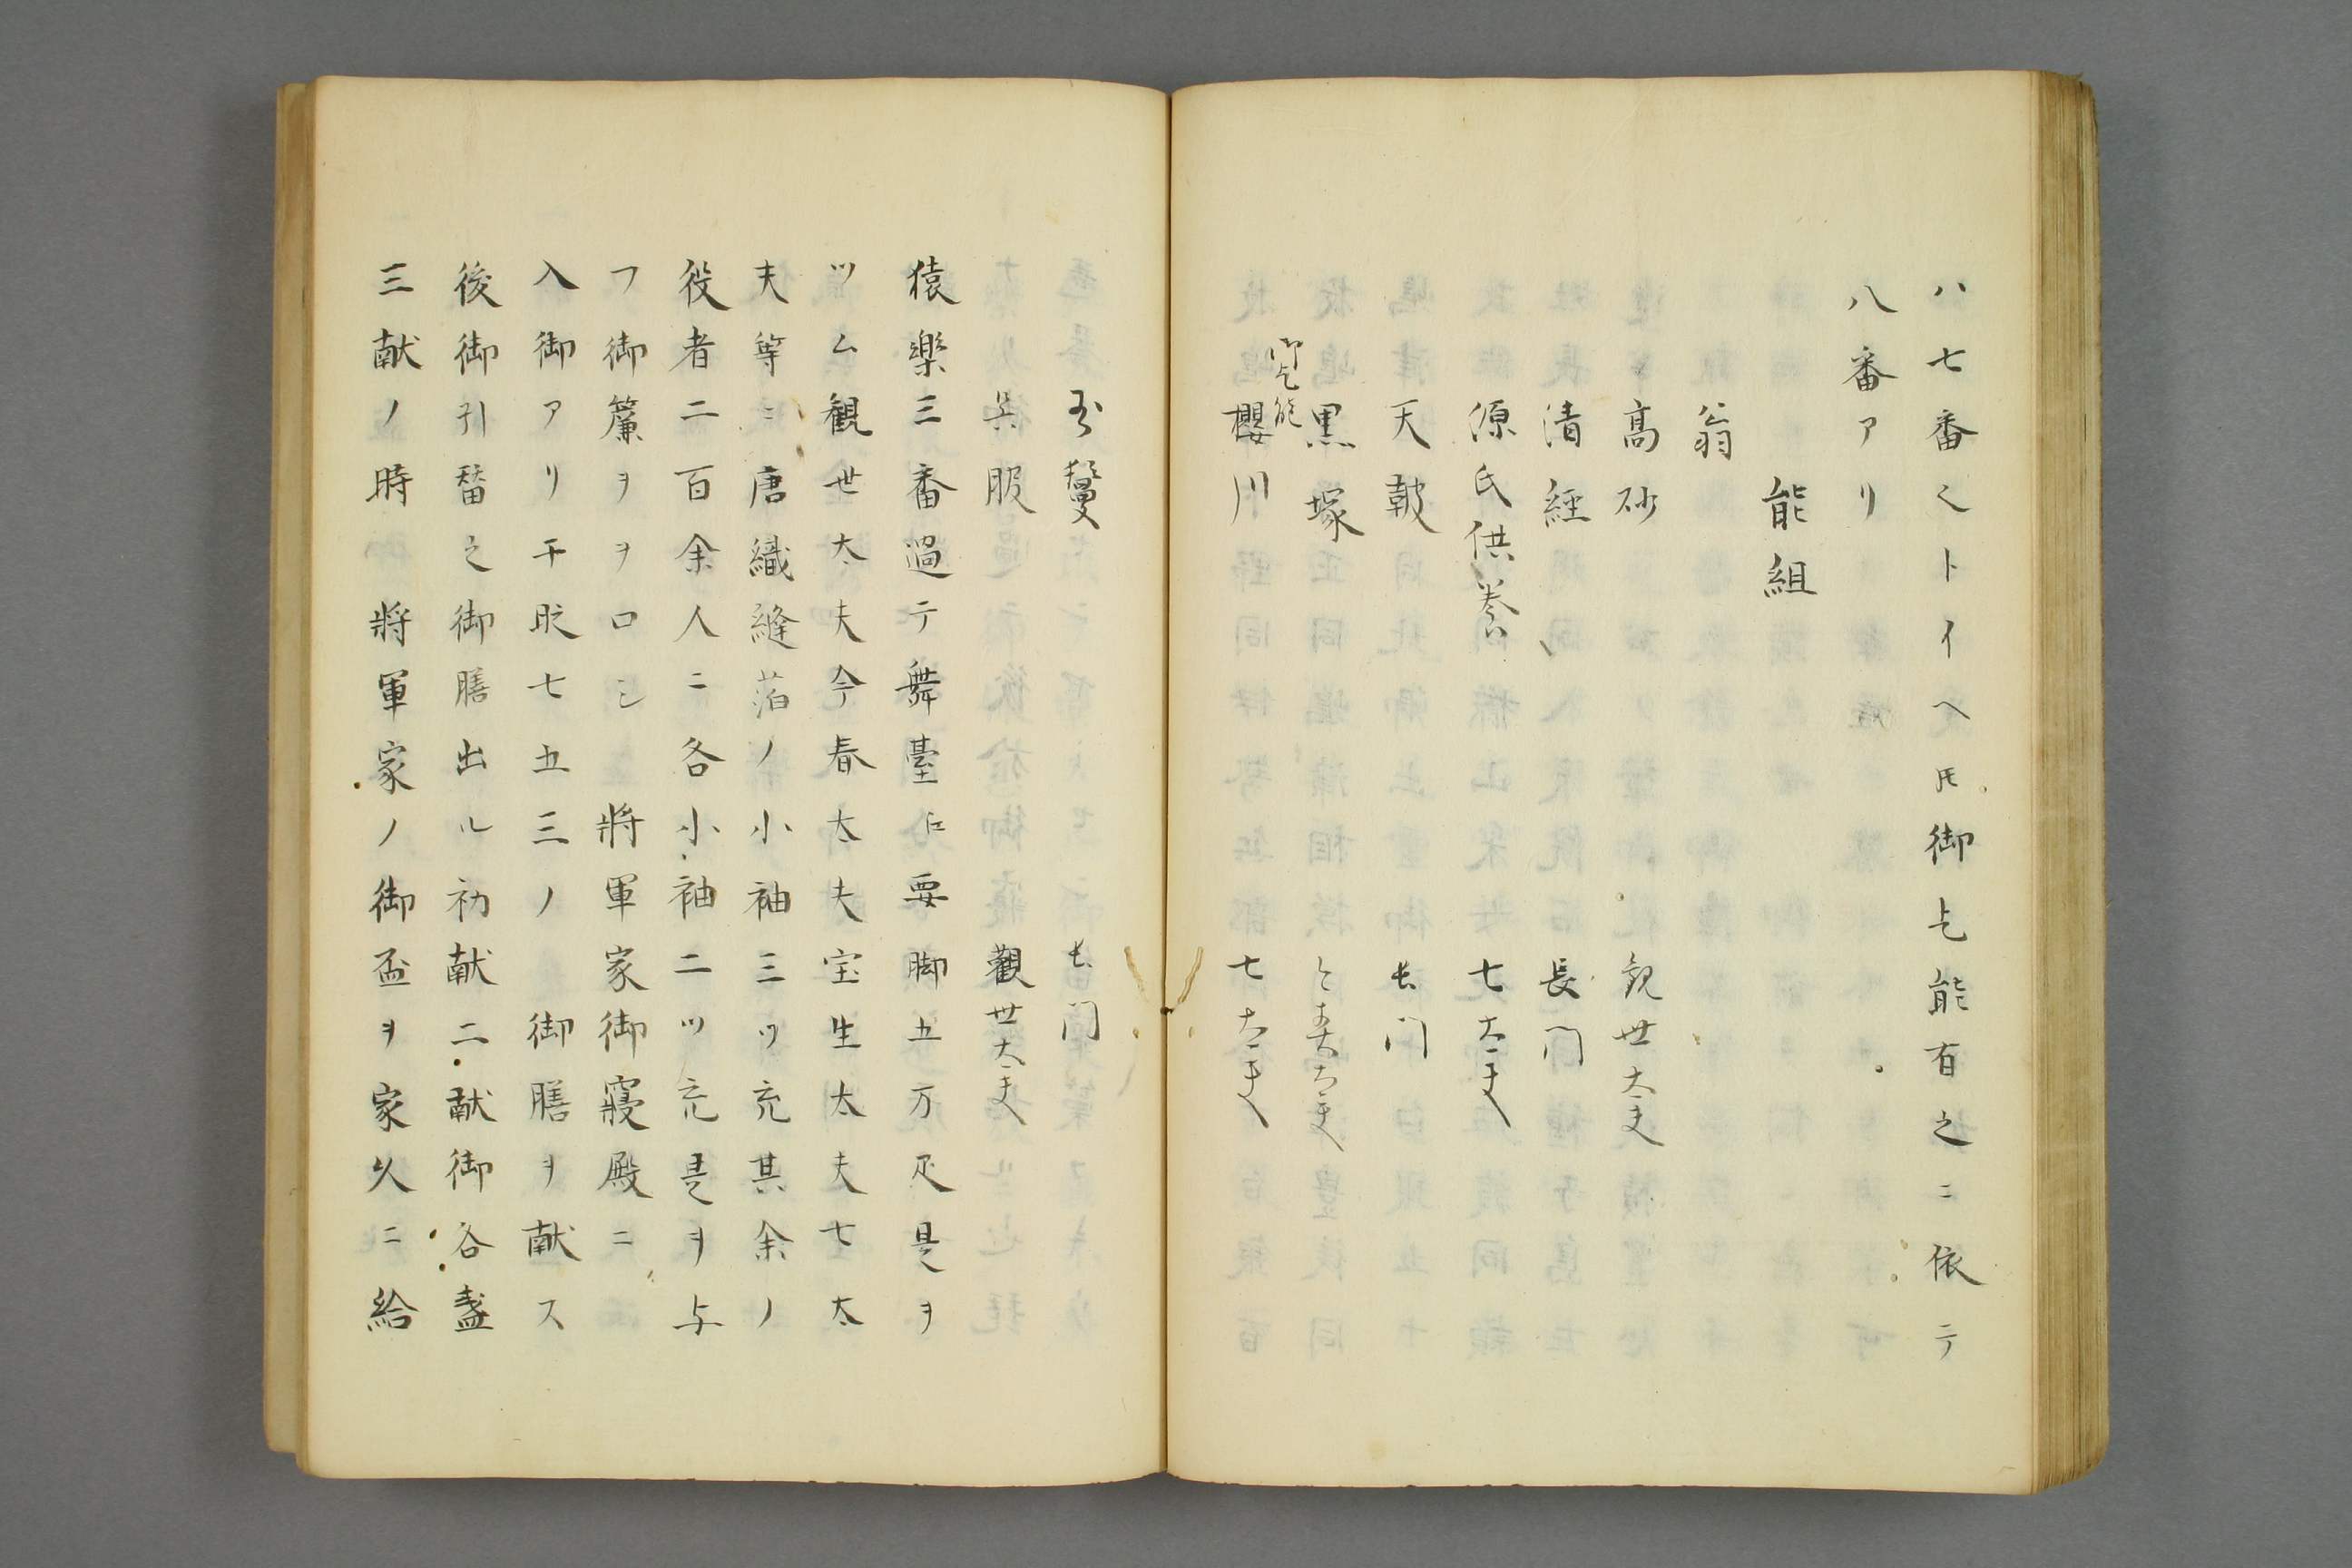 ハ七番〻トイヘ𪜈御乞能有之ニ依テ
八番アリ
能組
翁
高砂 観世太夫
清経 長門
源氏供養 七太夫
天鼓 長門
黒塚 今春太夫
御乞能
櫻川 七太夫
玉鬘 長門
呉服 觀世太夫
猿樂三番過テ舞臺江要脚五万疋是ヲ
ツム観世太夫今春太夫宝生太夫七太
夫等ニ唐織縫箔ノ小袖三ツ充其余ノ
役者二百余人ニ各小袖二ツ充是ヲ与
フ御簾ヲヲロシ 將軍家御寝殿ニ
入御アリ于時七五三ノ 御膳ヲ献ス
後御引替之御膳出ル初献二献御各盞
三献ノ時 將軍家ノ御盃ヲ家久ニ給